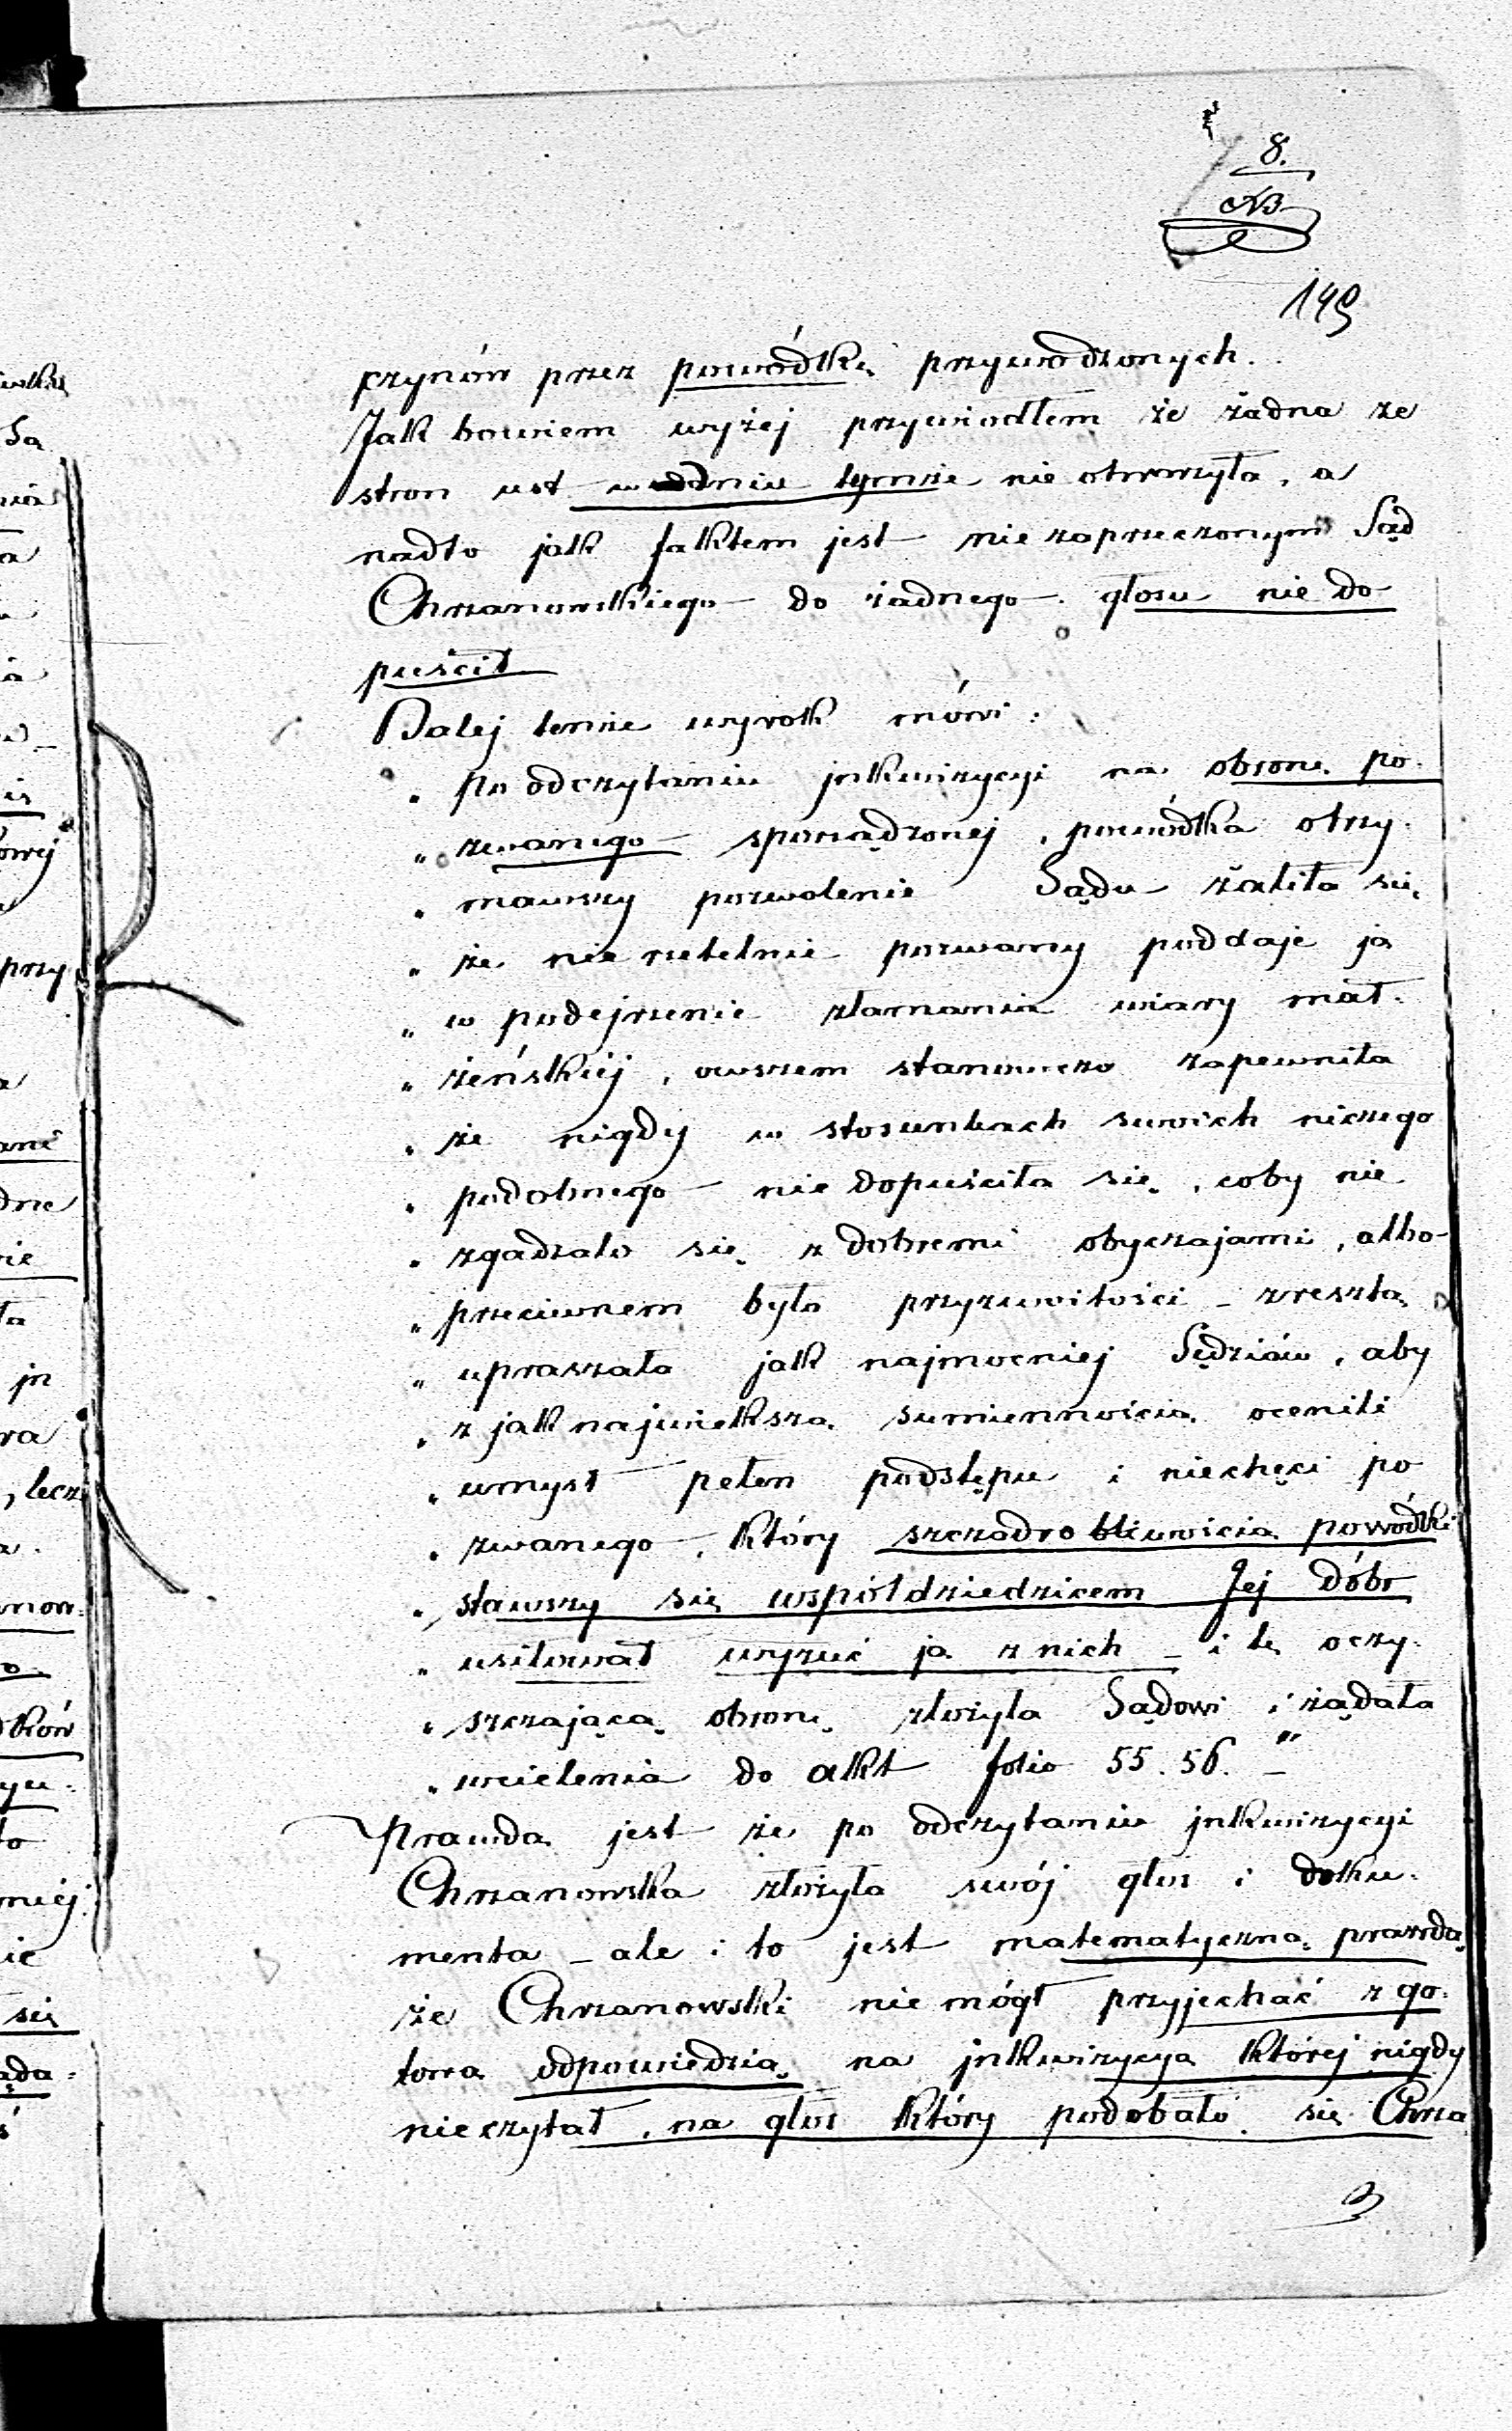 8.
NB
149
czynów przez powódkę przywodzonych.
Jak bowiem wyżej przywiodłem że żadna ze
stron ust w dniu tymże nie otworzyła, a
nadto jak faktem jest niezaprzeczonym Sąd
Chrzanowskiego do żadnego głosu nie do
puścił
Dalej tenże wyrok mówi:
„ Po odczytaniu jnkwizycyi na obronę po-
„ zwanego sporządzonej, powódka otrzy-
„ mawszy pozwolenie Sądu żaliła się,
„ że nierzetelnie pozwany poddaje ją
„ w podejrzenie złamania wiary mał-
„ żeńskiéj, owszem stanowczo zapewniła
„ że nigdy w stosunkach swoich niczego
„ podobnego nie dopuściła się, coby nie
„ zgadzało się z dobremi obyczajami, albo
„ przeciwnem było przyzwoitości – zresztą
„ upraszała jak najmocniej Sędziów, aby
„ z jak największą sumiennością ocenili
„ umysł pełen podstępu i niechęci po
„ zwanego, który szczodrobliwością powódki
„ stawszy się współdziedzicem Jej dóbr
„ usiłował wyzuć ją z nich – i tę oczy-
„ szczającą obronę złożyła Sądowi i żądała
„ wcielenia do akt folio 55. 56. –"
Prawda jest że po odczytaniu jnkwizycyi
Chrzanowska złożyła swój głos i doku-
menta – ale i to jest matematyczną prawdą,
że Chrzanowski nie mógł przyjechać z go-
tową odpowiedzią na jnkwizycyą której nigdy
nie czytał, na głos który podobało się Chrza